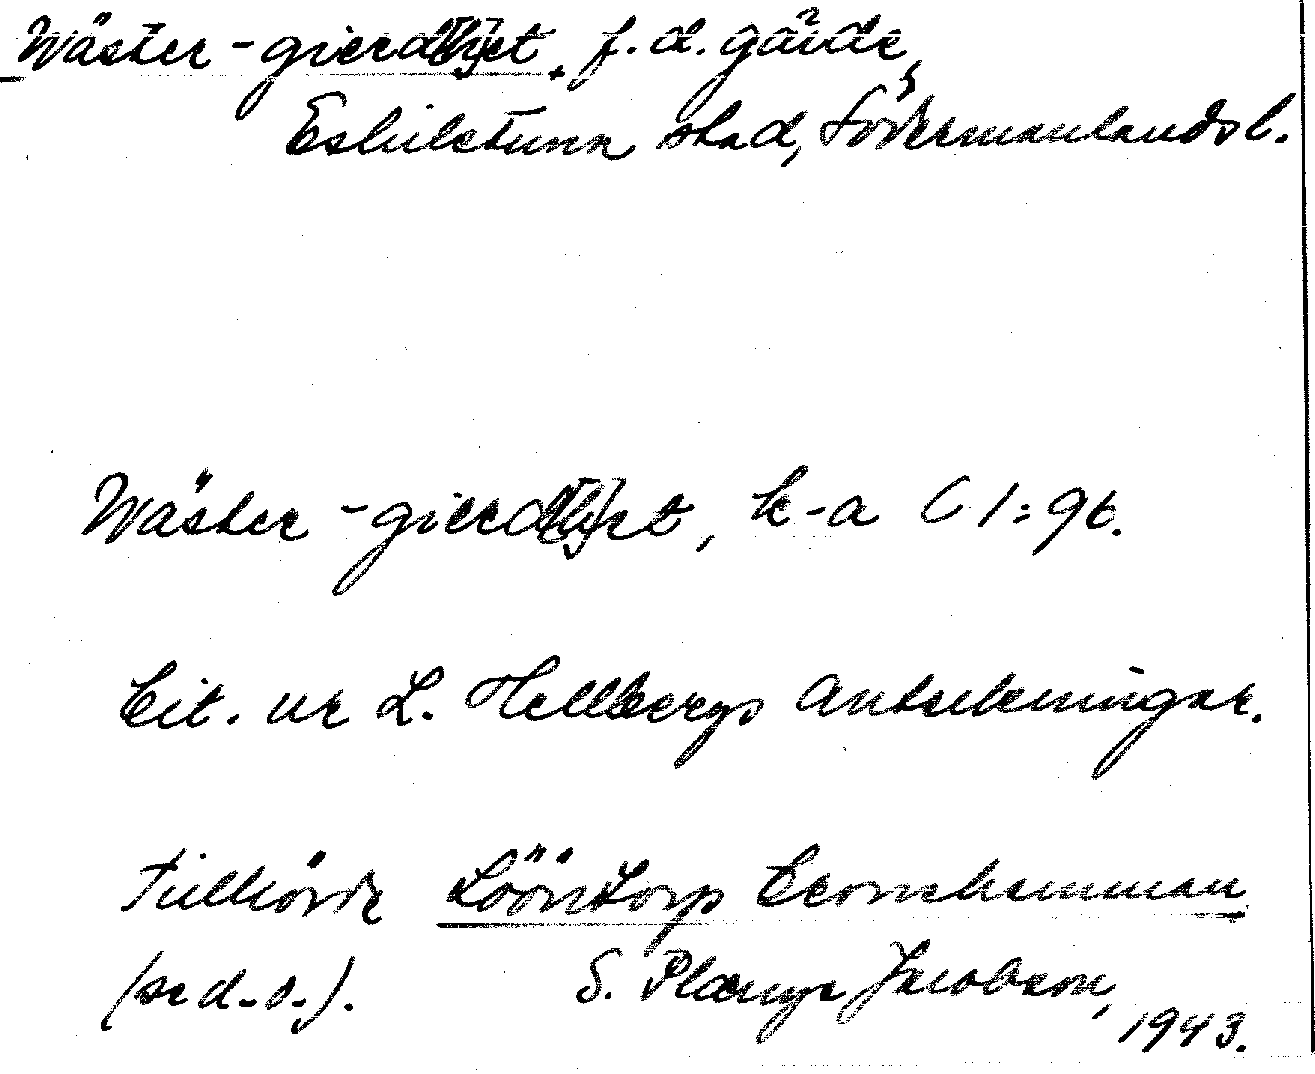 Wäster-gierd[h]et, f.d. gärde,
Eskilstuna stad, Södermanlands l.
Wäster-gierd[h]et, k-a C 1:96.
Cit. ur L. Hellbergs anteckningar.
Tillhörde Löönstorp Cronehemman
(se d.o.). S. Plænge Jacobson,
1943.